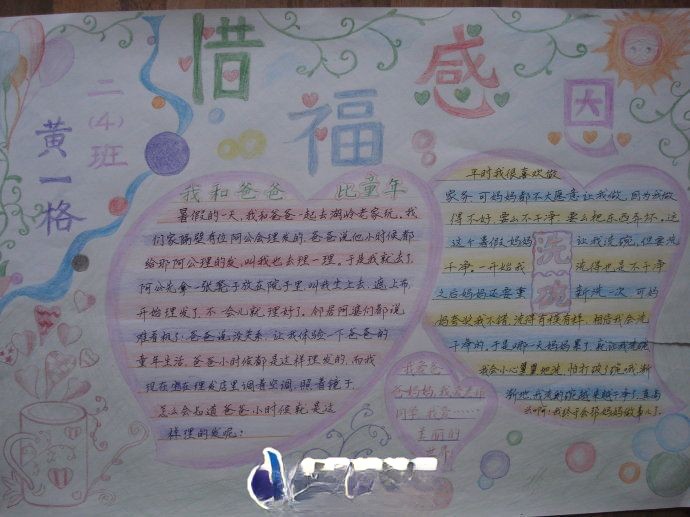 惜福感恩
二(4)班
黄一格
我和爸爸 比童年
暑假的一天,我和爸爸一起去湖岭老家玩,我
们家隔壁有位阿公会理发的,爸爸说他小时候都
给那阿公理的发,叫我也去理一理,于是我就去了
阿公先拿一张凳子放在院子里,叫我坐上去,遮上布,
开始理发了,不一会儿就理好了,邻居阿婆们都说
难看极了!爸爸说没关系,让我体验一下爸爸的
童年生活,爸爸小时候都是这样理发的,而我
现在都在理发店里调着空调,照着镜子,
怎么会知道爸爸小时候就是这
样理的发呢?
平时我很喜欢做
家务,可妈妈都不太愿意让我做,因为我做
得不好,要么不干净,要么把东西弄坏,这
这个暑假,妈妈让我洗碗,但要洗
干净,一开始我洗得也是不干净
之后妈妈还要重新洗一次,可妈
妈夸奖我不错,洗得有模有样,相信我会洗
干净的,于是哪一天妈妈累了,就让我洗碗
我会小心翼翼地洗,怕打破了碗哦,渐
渐地,我洗的碗越来越干净了,真高
兴啊!我终于会帮妈妈做事儿了
洗碗
我爱爸
爸妈妈,我爱老师
同学,我爱……
美丽的
世界!